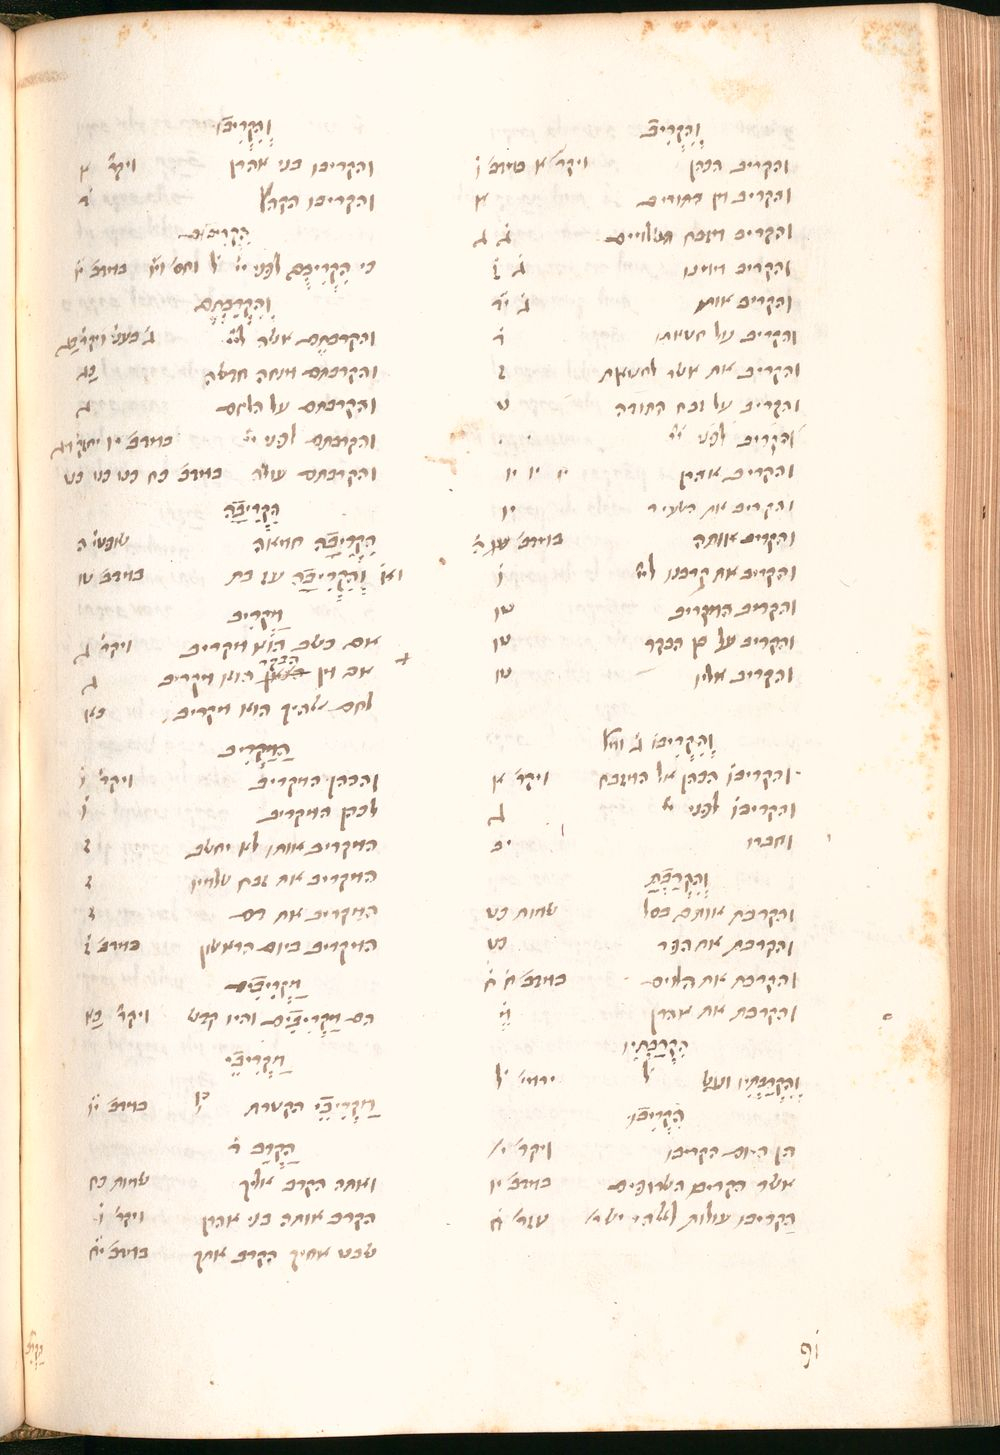 וְהִקְרִיב
והקריב הכהן ויקר׳ א במדב׳ ו
והקריב מן התורים א
והקריב מזבח השלמים ג ג
והקריב ממנו ג ז
והקריב אותו
והקריב על חטאתו
והקריב את אשר לחטאת
והקריב על זבח התודה
והקריב לפני יי
והקריב אהרן יו יו יו
והקריב את השעיר יו
והקריב אותה במדב׳ ה
והקריב את קרבנו ליי ו
והקריב המקריב טו
והקריב על בן הבקר טו
והקריב אליו טו
וְהִקְרִיבוֹ ג׳ ומל׳
והקריבו הכהן אל המזבח ויקר׳ א
והקריבו לפני יי ג
וחברו יב
וְהִקְרַבְתָּ
והקרבת אותם בסל שמות כט
והקרבת את הפר כט
והקרבת את הלוים במדב׳ ח ח
והקרבת את אהרן
הִקְרַבְתִּיו
וְהִקְרַבְתִּיו ונגש ל ירמי׳ ל
הִקְרִיבוּ
הן היום הקריבו ויקר׳ י
אשר הקריבו השרופים במדב׳ יו
הַקריבו עולות לאלהי ישר׳ עזר׳ ח
וְהִקְרִיבוּ
והקריבו בני אהרן ויקר׳ א
והקריבו הקהל
הַקְרִיבָם
כי הִקְרִיבֻם לפני יי במדב׳ יז
וְהִקְרַבְתֶּם
והקרבתם אשה ליי
והקרבתם מנחה חדשה כג
והקרבתם על הלחם כג
והקרבתם לפני יי במדב׳ יו
והקרבתם עולה במדב׳ כח כט כט כט
הִקְרִיבָה
הִקְרִיבָה חמאה שופטי׳ ה
וא׳ וְהִקְרִיבָה עז בת במדב׳ טו
מקריב
אם כשב הוא מקריב ויקר׳ ג
אם מן הבקר הוא מקריב ג
לחם אלהיך הוא מקריב כא
המקריב
והכהן המקריב ויקר׳ ו
לכהן המקריב ז
המקריב אותו לא יחשב ז
המקריב את זבח שלמיו ז
המקריב את דם ז
המקריב ביום הראשון במדב׳ ז
מַקְרִיבִים
הם מַקְרִיבִים והיו קדש ויקר׳ כא
מַקְרִיבֵי
מַקְרִיבֵי הקטרת במדב׳ יז
הַקְרֵב ד׳
ואתה הקרב אליך שמות כח
הקרב אותה בני אהרן ויקר׳ ו
שבט אחיך הַקרב אתך במדב׳ יח